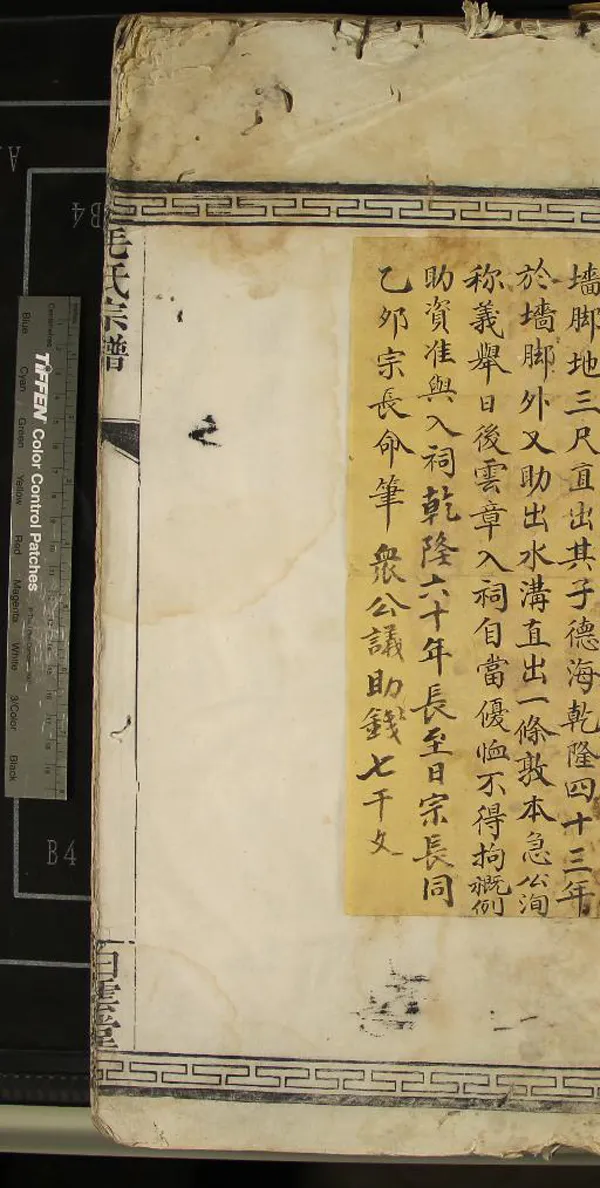 墻脚地三尺直出其子德海乾隆四十三年
於墻脚外又助出水溝直出一條敦本急公洵
称義舉日後雲章入祠自當優恤不得拘概例
助資准與入祠乾隆六十年長至日宗長同
乙夘宗長命筆 衆公議助錢七千文
毛氏宗譜
白雲堂
TIFFEN Color Control Patches
Blue
Cyan
Green
Yellow
Red
Magenta
White
3/Color
Black
Centimetres
B4
B4
A